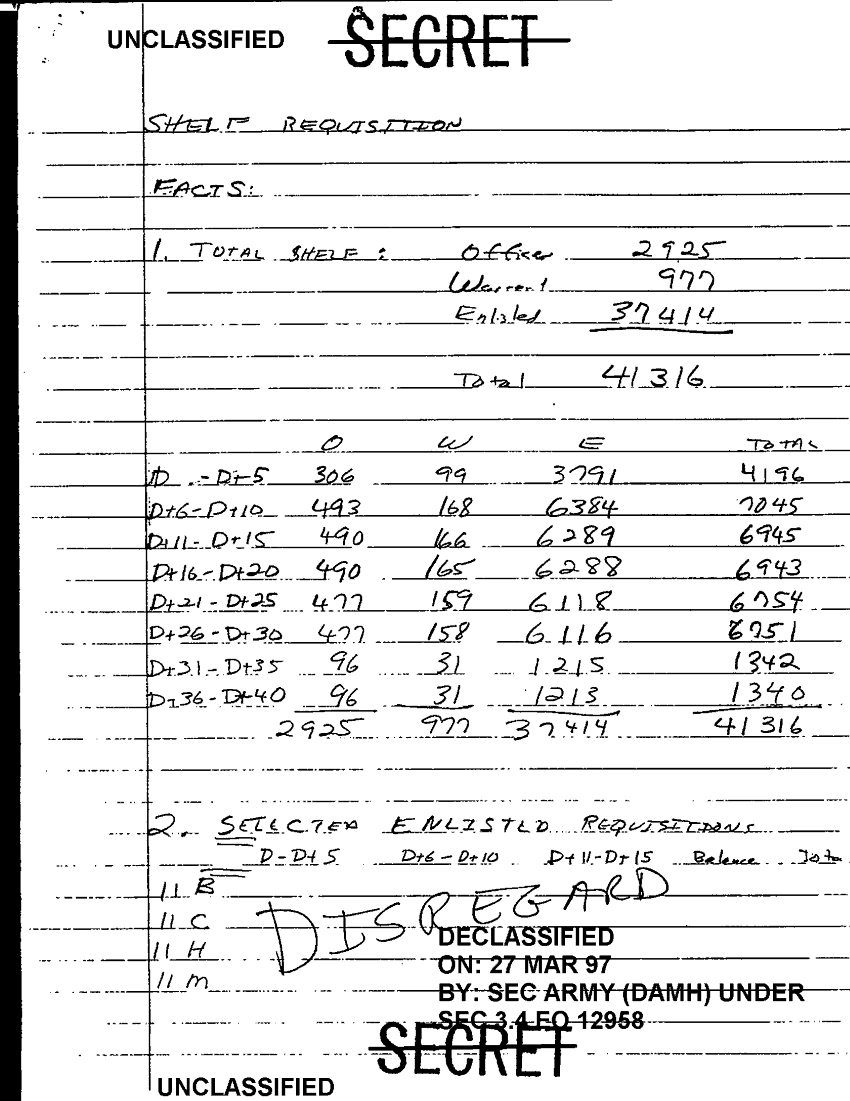 UNCLASSIFIED SECRET
SHELF REQUISITION
FACTS:
1. TOTAL SHELF : Officer 2925
Warrant 977
Enlisted 37414
Total 41316
O W E TOTAL
D - D+5 306 99 3791 4196
D+6-D+10 493 168 6384 7045
D+11-D+15 490 166 6289 6945
D+16-D+20 490 165 6288 6943
D+21-D+25 477 159 6118 6754
D+26-D+30 477 158 6116 6751
D+31-D+35 96 31 1215 1342
D+36-D+40 96 31 1213 1340
2925 977 37414 41316
2. SELECTED ENLISTED REQUISITIONS
D-D+5 D+6-D+10 D+11-D+15 Balance Tota
11 B
11 C
11 H
11 M
DISREGARD
DECLASSIFIED
ON: 27 MAR 97
BY: SEC ARMY (DAMH) UNDER
SEC 3.4 EO 12958
SECRET
UNCLASSIFIED